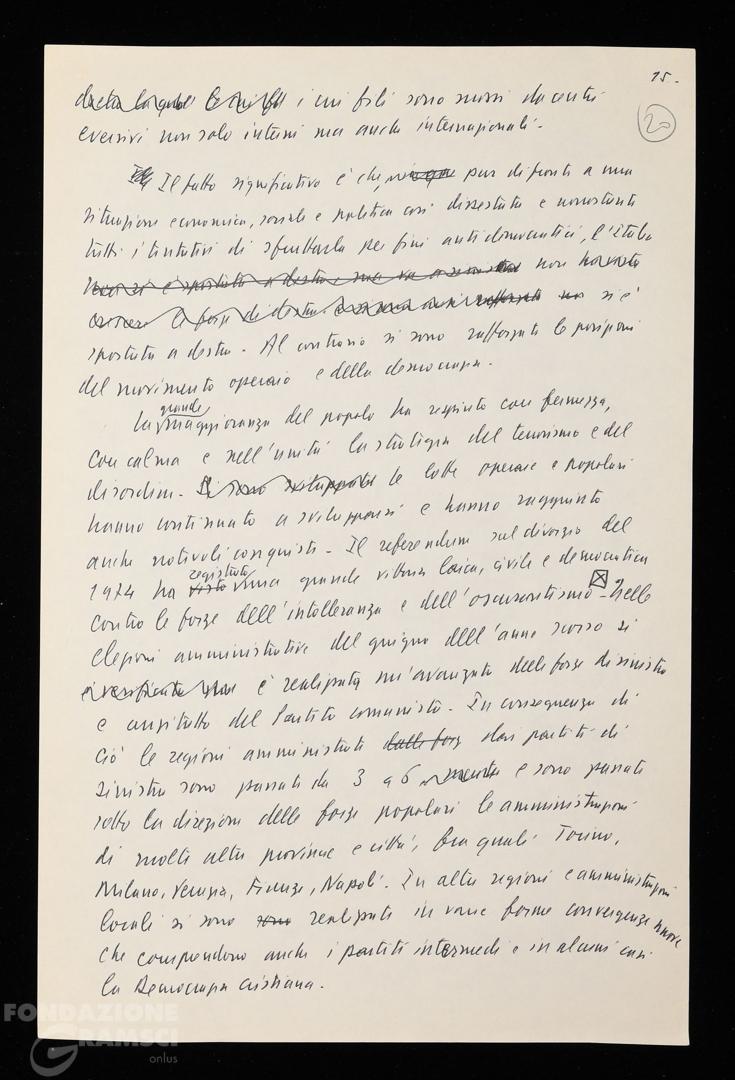 15.
20
i cui fili sono mossi da centri
eversivi non solo interni ma anche internazionali.
Il fatto significativo è che, pur di fronte a una
situazione economica, sociale e politica così dissestata e nonostante
tutti i tentativi di sfruttarla per fini antidemocratici, l'Italia
non
si è
spostata a destra. Al contrario si sono rafforzate le posizioni
del movimento operaio e della democrazia.
grande
La maggioranza del popolo ha respinto con fermezza,
con calma e nell'unità la strategia del terrorismo e del
disordine. le lotte operaie e popolari
hanno continuato a svilupparsi e hanno raggiunto
anche notevoli conquiste. Il referendum sul divorzio del
registrato
1974 ha visto una grande vittoria laica, civile e democratica
contro le forze dell'intolleranza e dell'oscurantismo. Nelle
elezioni amministrative del giugno dell'anno scorso si
è realizzata un'avanzata delle forze di sinistra
e anzitutto del Partito comunista. In conseguenza di
ciò le regioni amministrate dalle forze dai partiti di
sinistra sono passate da 3 a 6 e sono passate
sotto la direzione delle forze popolari le amministrazioni
di molte altre province e città, fra quali Torino,
Milano, Venezia, Firenze, Napoli. In altre regioni e amministrazioni
locali si sono sono realizzate in varie forme convergenze nuove
che comprendono anche i partiti intermedi e in alcuni casi
la Democrazia cristiana.
FONDAZIONE
GRAMSCI
onlus